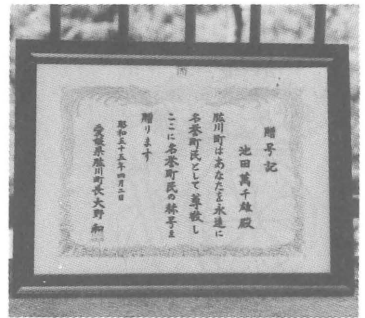 贈号記
池田萬千雄殿
肱川町はあなたを永遠に
名誉町民として尊敬し
ここに名誉町民の称号を
贈ります
昭和五十五年四月二日
愛媛県肱川町長大野和